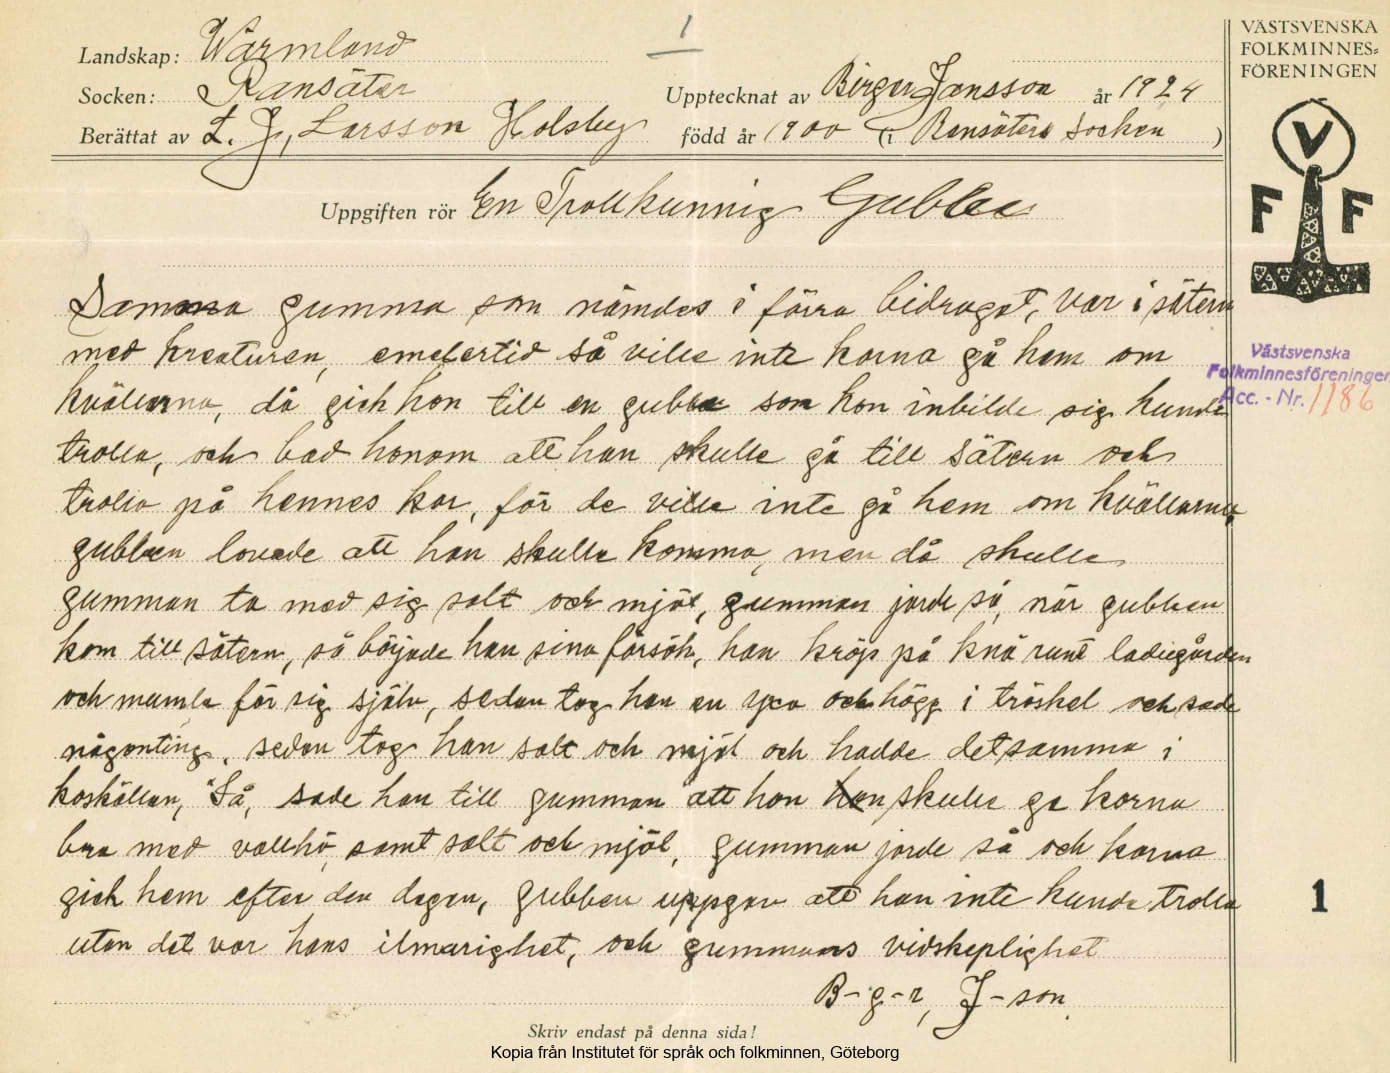 1
Landskap: Wärmland
Socken: Ransäter
Berättat av L. J, Larsson Holsby
Upptecknat av Birger Jansson år 1924
född år 1900 (i Ransäters Socken )
Uppgiften rör En Trollkunnig Gubbe
Samma gumma som nämdes i förra bidraget, var i sätern
med kreaturen, emelertid så ville inte korna gå hem om
kvällarna, då gick hon till en gubbe som hon inbilde sig kunde
trolla, och bad honom att han skulle gå till sätern och
trolla på hennes kor, för de ville inte gå hem om kvällarna,
gubben lovade att han skulle komma, men då skulle
gumman ta med sig salt och mjöl, gumman jorde så, när gubben
kom till sätern, så började han sina försök, han kröp på knä runt ladugården
och mumla för sig själv, sedan tog han en yxa och högg i tröskel och sade
någonting. sedan tog han salt och mjöl och hadde detsamma i
koskällan, "Så, sade han till gumman" att hon han skulle ge korna
bra med vallhö, samt salt och mjöl, gumman jorde så och korna
gick hem efter den dagen, gubben uppgav att han inte kunde trolla
utan det var hans ilmarighet, och gummans vidskeplighet
B-g-r, J-son.
Skriv endast på denna sida!
Kopia från Institutet för språk och folkminnen, Göteborg
VÄSTSVENSKA
FOLKMINNES=
FÖRENINGEN
V
F F
Västsvenska
Folkminnesföreningen
Acc. - Nr. 1186
1